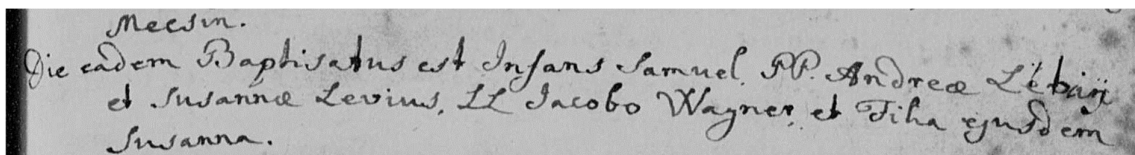 Mecsin.
Die eadem Baptisatus est Infans Samuel. PP. Andreæ
et Susannæ Levius, LL Jacobo Wagner, et Filia ejusdem
Susanna.